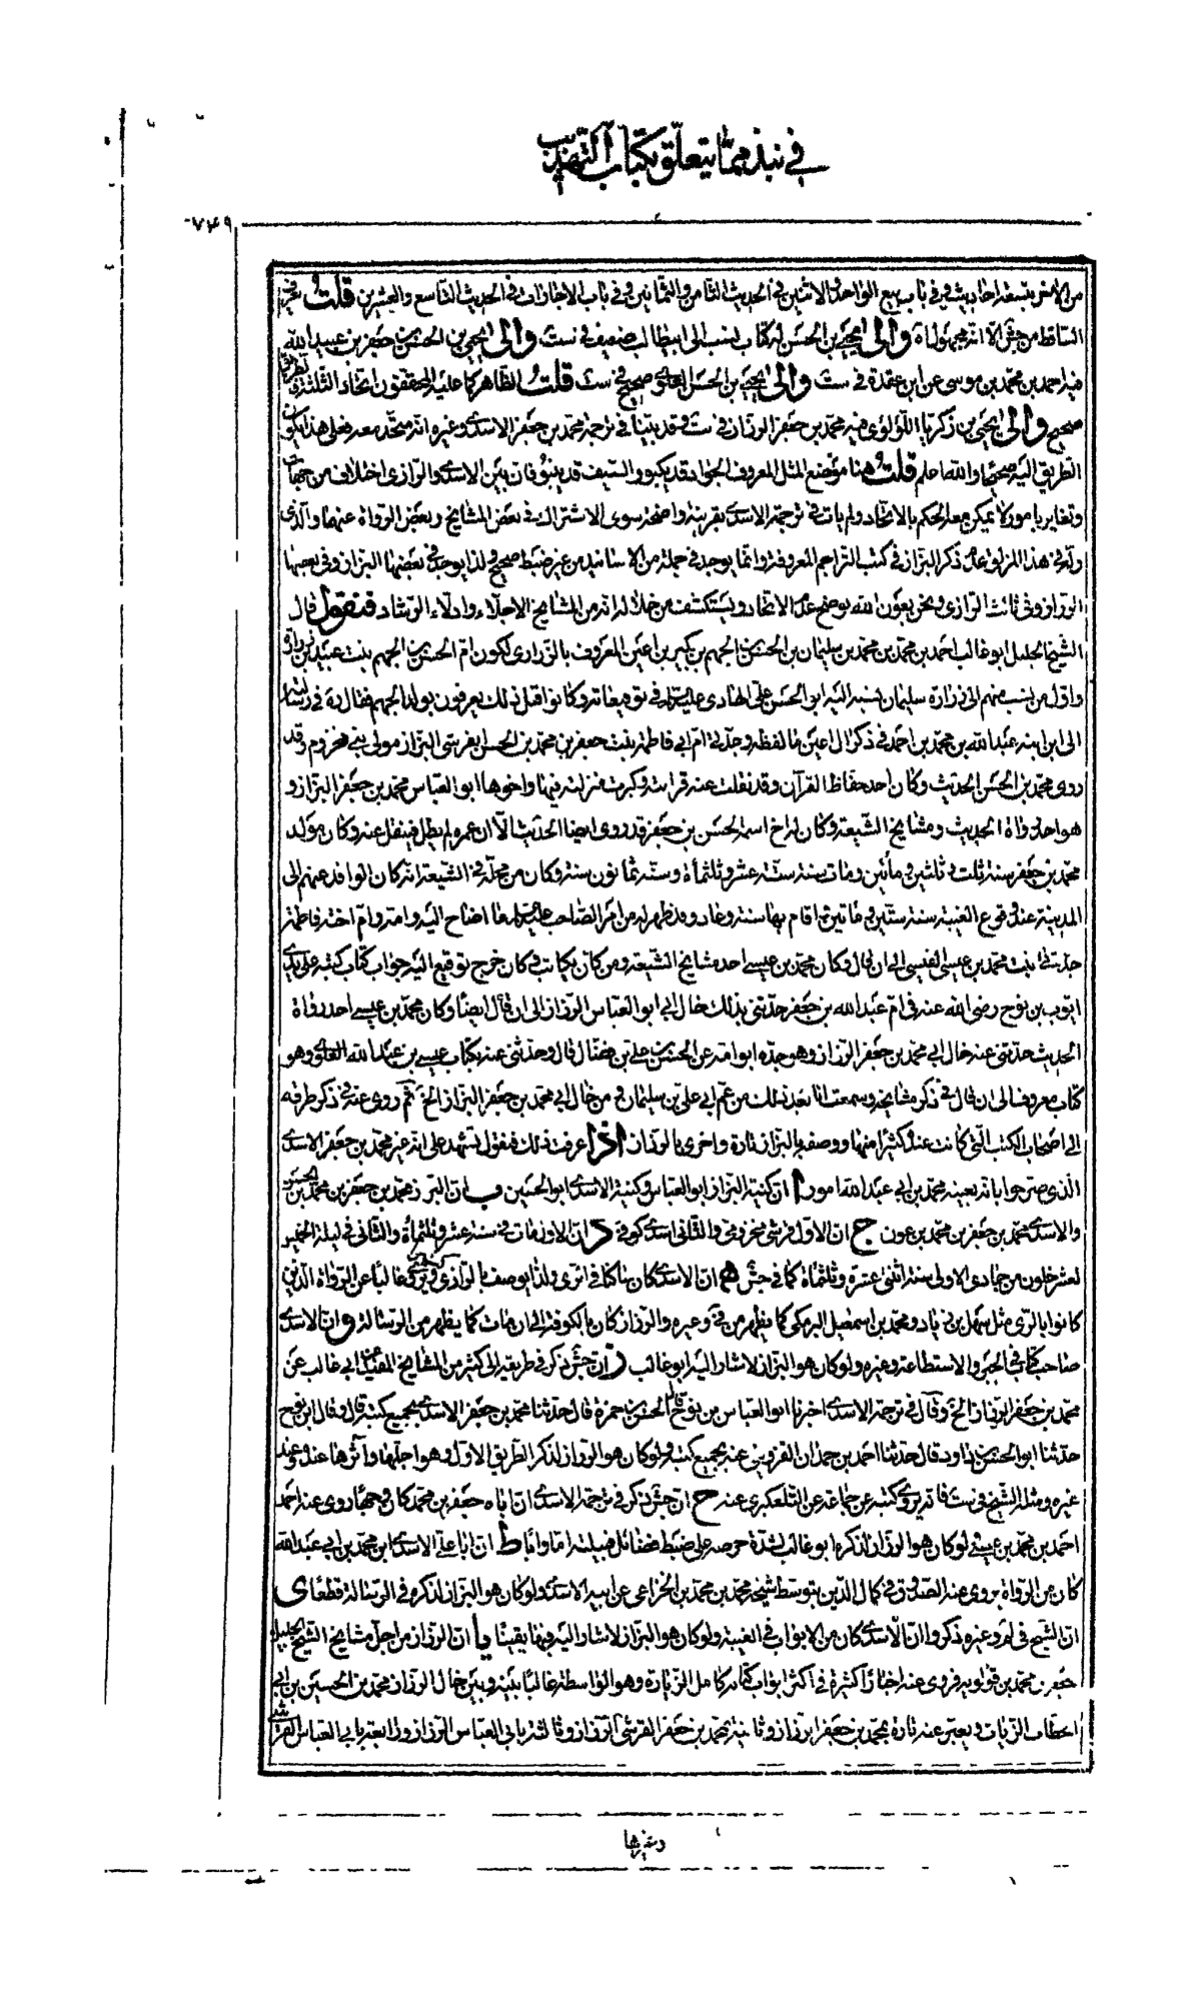 في نبذ مما يتعلق بكتاب التهذيب
٧٤٩
من الأمر بتسعة احاديث وفي باب بيع الواحد والاثنين في الحديث الثامن والثمانين وفي باب الاجازات في الحديث التاسع والعشرين قلت
الساقط من جش الا انه مجهول اه والى يحيى بن الحسن له كتاب نسب الى ابيطالب ضعيف في ست والى يحيى بن الحسن بن جعفر بن عبيد الله
فيه احمد بن محمد بن موسى عن ابن عقدة في ست والى يحيى بن الحسن العلوى صحيح في ست قلت الظاهر كما عليه المحققون اتحاد الثلثة
صحيح والى يحيى بن زكريا اللؤلؤى فيه محمد بن جعفر الرزاز في ست وقد بينا في ترجمة محمد بن جعفر الاسدى وغيره انه متحد معه فعلى هذا يكون
الطريق اليه صحيحا والله اعلم قلت هنا موضع المثل المعروف الجواد قد يكبو والسيف قد ينبو فان بين الاسدى والرازى اختلاف من جهات
وتغاير بامور لا يمكن معه الحكم بالاتحاد ولم يات في ترجمة الاسدى بقرينة واضحة سوى الاشتراك في بعض المشايخ وبعض الرواة عنهما والذى
في هذا المزلقة عدم ذكر البزاز في كتب التراجم المعروفة وانما يوجد في جملة من الاسانيد من غير ضبط صحيح ولذا يوجد في بعضها البزاز وفي بعضها
الرزاز وفي ثالث الرازى ونحن بعون الله نوضح عدم الاتحاد ويستكشف من خلاله انه من المشايخ الاجلاء وادلاء الرشاد فنقول قال
الشيخ الجليل ابو غالب احمد بن محمد بن محمد بن سليمان بن الحسن بن الجهم بن بكير بن اعين المعروف بالزرارى لكون ام الحسن بن الجهم بنت عبيد بن زرارة
واول من نسب منهم الى زرارة سليمان نسبه اليه ابو الحسن على الهادى عليه السلام في توقيعاته وكانوا قبل ذلك يعرفون بولد الجهم فقال ره في رسالته
الى ابن ابنه عبد الله بن محمد بن احمد في ذكر آل اعين ما لفظه وجدتى ام ابى فاطمة بنت جعفر بن محمد بن الحسن القرشى البزاز مولى بنى مخزوم وقد
روى محمد بن الحسن الحديث وكان احد حفاظ القرآن وقد نقلت عنه قرائت وكبرت منزلته فيها واخوها ابو العباس محمد بن جعفر البزاز و
هو احد رواة الحديث ومشايخ الشيعة وكان له اخ اسمه الحسن بن جعفر قد روى ايضا الحديث الا ان عمره لم يطل فينقل عنه وكان مولد
محمد بن جعفر سنة ثلث وثلثين ومأتين ومات سنة ستة عشر وثلثمأة وسنه ثمانون سنة وكان من محله في الشيعة انه كان الوافد عنهم الى
المدينة عند وقوع الغيبة سنة ستين ومأتين واقام بها سنة وعاد وقد ظهر له من امر الصاحب عليه السلام ما احتاج اليه وامه وام اخته فاطمة
جدتى بنت محمد بن عيسى القيسى الى ان قال وكان محمد بن عيسى احد مشايخ الشيعة ومن كان يكاتب وكان خرج توقيع اليه جواب كتاب كتبه على يدى
ايوب بن نوح رضى الله عنه في ام عبد الله بن جعفر حدثنى بذلك خال ابى ابو العباس الرزاز الى ان قال ايضا وكان محمد بن عيسى احد رواة
الحديث حدثنى عنه خال ابى محمد بن جعفر الرزاز وهو جده ابو امه عن الحسن بن على بن فضال قال وحدثنى عنه بكتاب عيسى بن عبد الله العلوى وهو
كتاب معروف الى ان قال في ذكر مشايخه وسمعت انا بعد ذلك من عم ابى على بن سليمان ومن خال ابى محمد بن جعفر البزاز الخ ثم روى عنه في ذكر طرقه
الى اصحاب الكتب التى كانت عنده كثيرا منها ووصفه بالبزاز تارة واخرى بالرزاز اذا عرفت ذلك فنقول نشهد على انه غير محمد بن جعفر الاسدى
الذى صرحوا بانه بعينه محمد بن ابى عبد الله امور ا ان كنية البزاز ابو العباس وكنية الاسدى ابو الحسين ب ان البزاز محمد بن جعفر بن محمد بن الحسن
والاسدى محمد بن جعفر بن محمد بن عون ج ان الاول قرشى مخزومى والثانى اسدى كوفى د ان الاول مات في سنة عشر وثلثمأة والثانى في ليلة الخميس
لعشر خلون من جمادى الاولى سنة اثنى عشرة وثلثمأة كما في جش ه ان الاسدى كان ساكنا في الرى ولذا يوصف بالرازى ويروى غالبا عن الرواة الذين
كانوا بالرى مثل سهل بن زياد ومحمد بن اسمعيل البرمكى كما يظهر من في وغيره والرزاز كان بالكوفة الى ان مات كما يظهر من الرسالة و ان الاسدى
صاحب كتاب في الجبر والاستطاعة وغيره ولو كان هو البزاز لاشار اليه ابو غالب ز ان جش ذكر في طريقه الى كثير من المشايخ المفيد عن ابى غالب عن
محمد بن جعفر الرزاز الخ وقال في ترجمة الاسدى اخبرنا ابو العباس بن نوح قال الحسن بن حمزة قال حدثنا محمد بن جعفر الاسدى بجميع كتبه قال وقال ابن نوح
حدثنا ابو الحسن بن داود قال حدثنا احمد بن حمدان القزوينى عنه بجميع كتبه ولو كان هو الرزاز لذكر الطريق الاول وهو اجلها واثرها عنده وعند
غيره ومثله الشيخ في ست فانه يروى كتبه عن جماعة عن التلعكبرى عنه ح ان جش ذكر في ترجمة الاسدى ان اباه جعفر بن محمد كان وجها روى عنه احمد
احمد بن محمد بن عيسى ولو كان هو الرزاز لذكره ابو غالب لشدة حرصه على ضبط فضائل قبيلته اما وابا ط ان ابا على الاسدى ابن محمد بن ابى عبد الله
كان من الرواة يروى عنه الصدوق في كمال الدين بتوسط شيخه محمد بن محمد بن الخزاعى عن ابيه الاسدى ولو كان هو البزاز لذكره في الرسالة قطعا ى
ان الشيخ في لم وغيره ذكروا ان الاسدى كان من الابواب في الغيبة ولو كان هو البزاز لاشار اليه فيها يقينا يا ان الرزاز من اجل مشايخ الشيخ الجليل
جعفر بن محمد بن قولويه فروى عنه اخبارا كثيرة في اكثر ابواب كتابه كامل الزيارة وهو الواسطة غالبا بينه وبين خال الرزاز محمد بن الحسين بن ابى
الخطاب الزيات ويعبر عنه تارة بمحمد بن جعفر الرزاز وثانية محمد بن جعفر القرشى الرزاز وثالثة بابى العباس الرزاز ورابعة بابى العباس القرشى
وغيرها